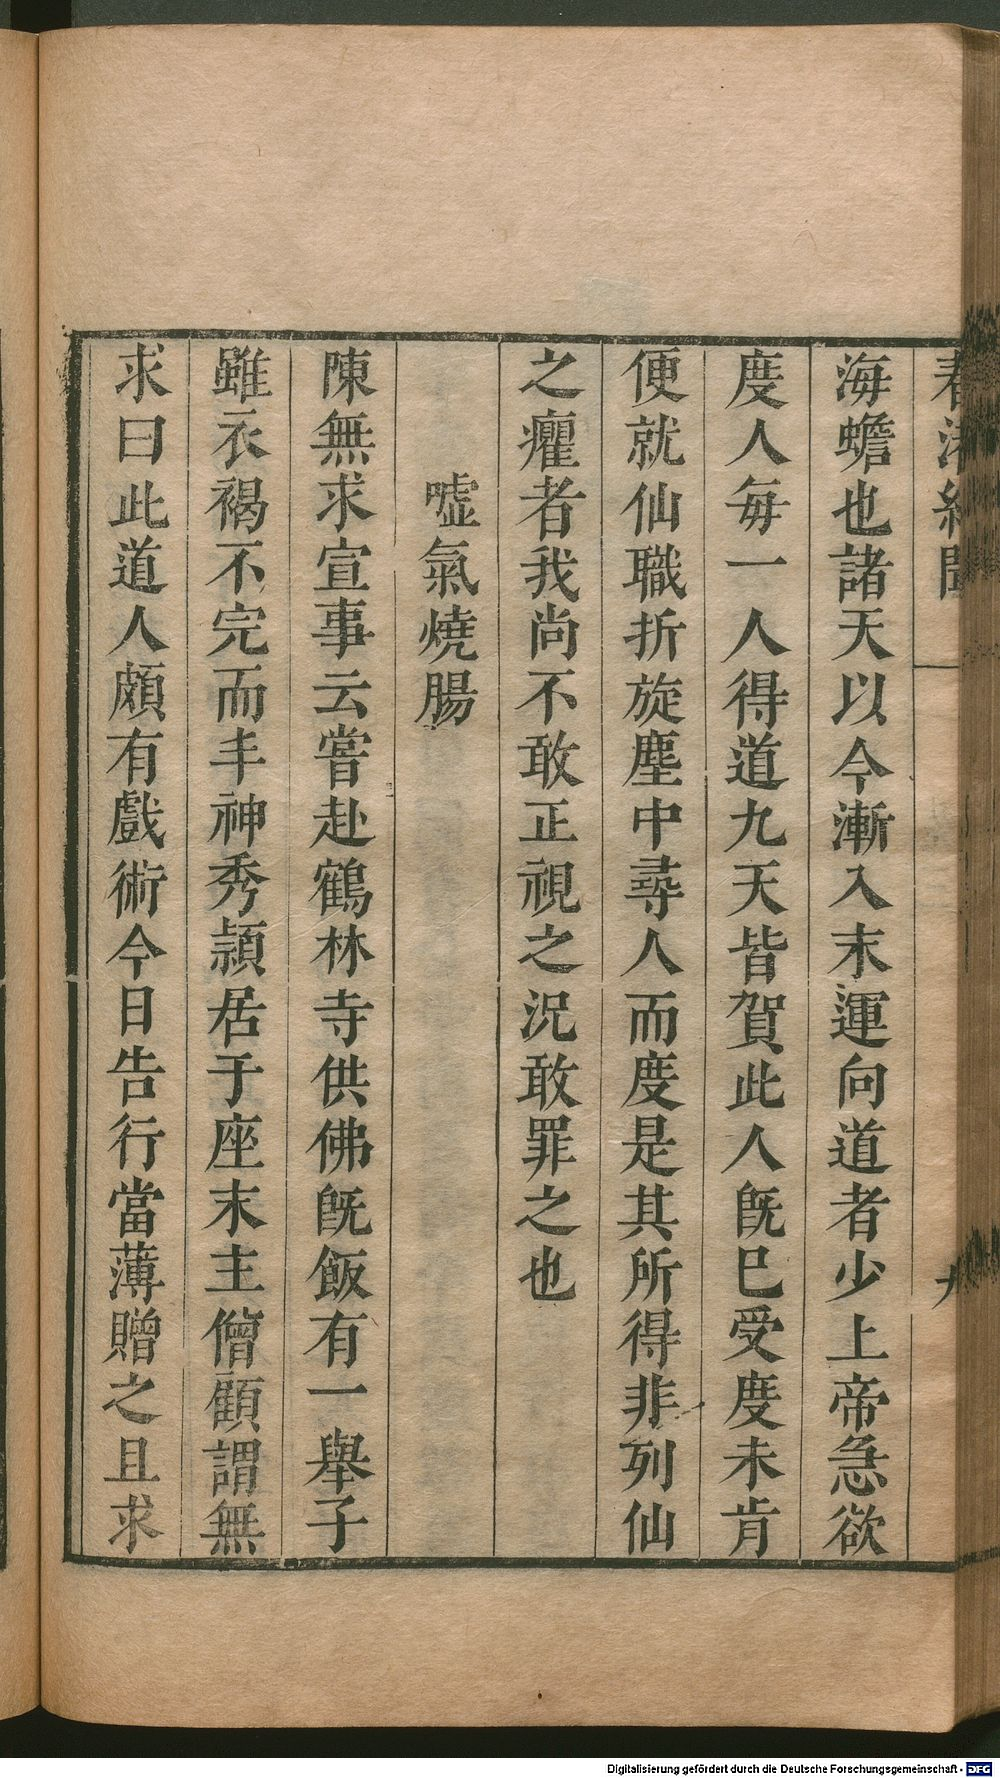 春渚紀聞 九
海蟾也諸天以今漸入末運向道者少上帝急欲
度人每一人得道九天皆賀此人旣巳受度未肯
便就仙職折旋塵中尋人而度是其所得非列仙
之癯者我尚不敢正視之況敢罪之也
噓氣燒腸
陳無求宣事云嘗赴鶴林寺供佛旣飯有一舉子
雖衣褐不完而丰神秀頴居于座末主僧顧謂無
求曰此道人頗有戲術今日告行當薄贈之且求
Digitalisierung gefördert durch die Deutsche Forschungsgemeinschaft - DFG